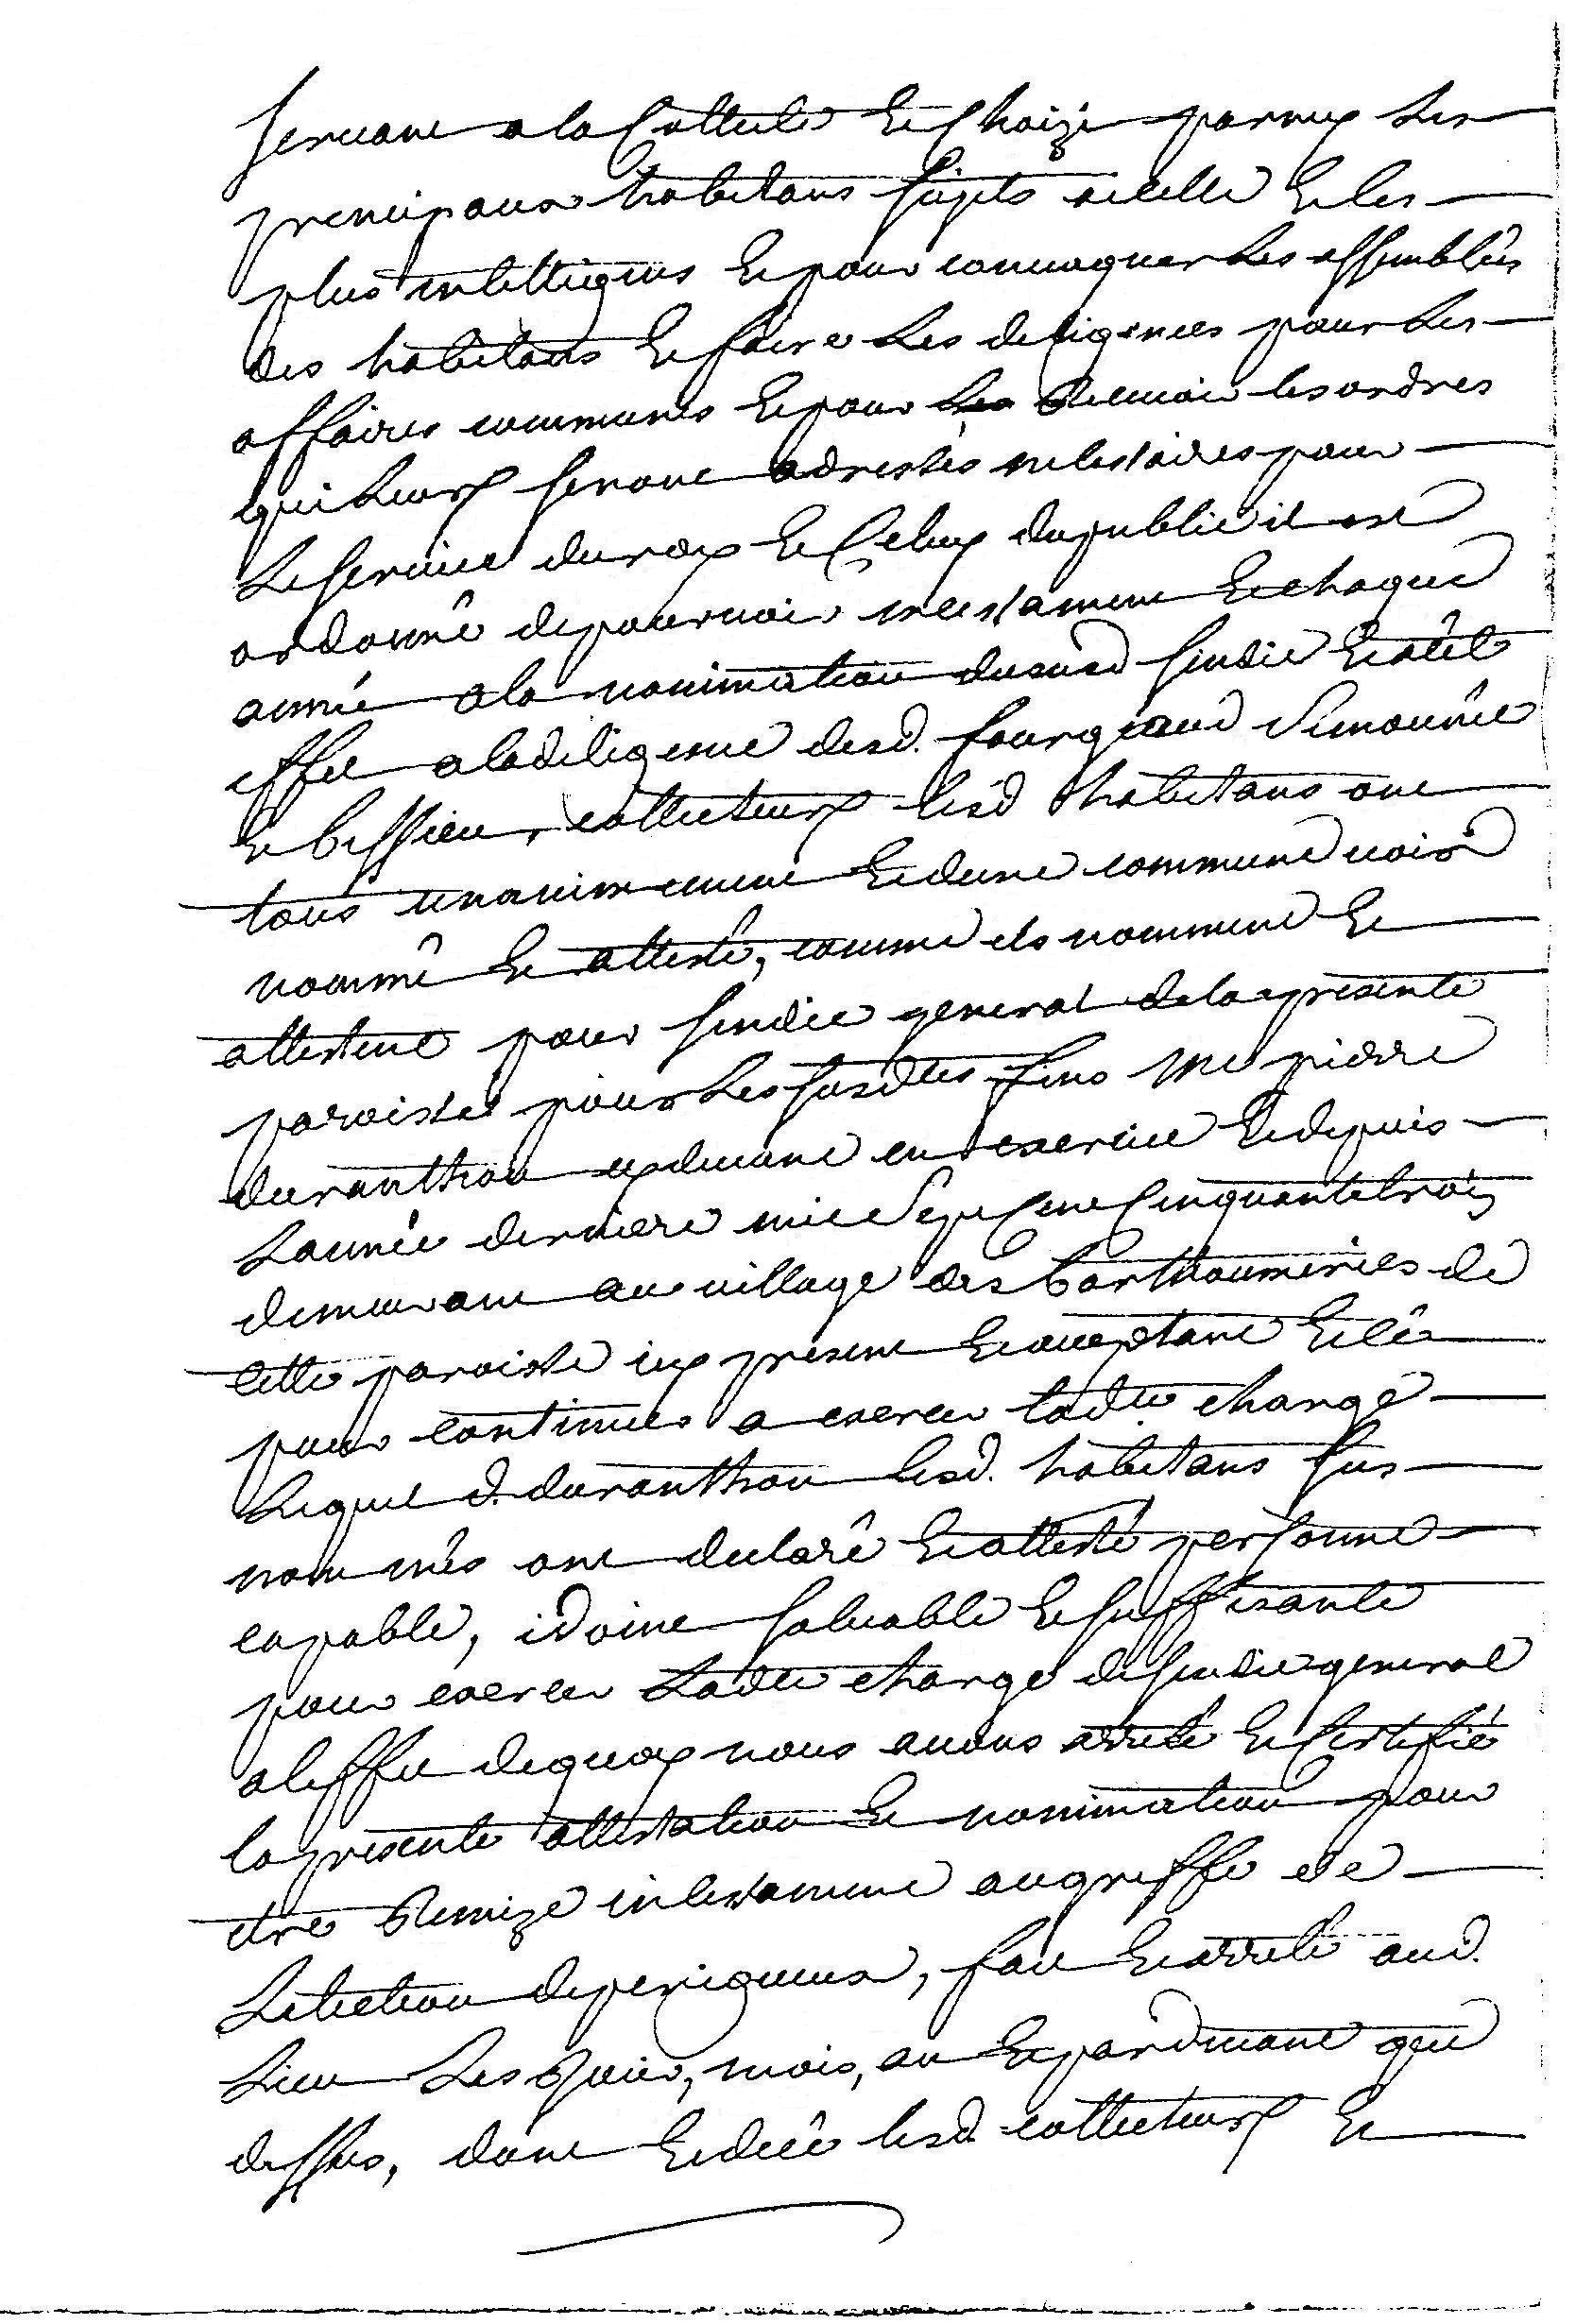 servant a la Collecte et Choizi parmy les
principaux habitans sujets a icelle et les
plus intelligens et pour convoquer les assemblées
des habitans et faire les deligences pour les
affaires communes et pour les Recevoir les ordres
qui leurs seront adressés necessaires pour
le service du roy et Celuy du public il est
ordonné de pourvoir incessament et chaque
année a la nomination dususd sindic et a cet
effet a la diligence desd. fourgeaud Simounée
et bessieu, collecteurs lesd habitans ont
tous unanimement et dune commune voix
nommé et attesté, comme ils nomment et
attestent pour sindic general de la presente
paroisse pour les susdtes fins Me pierre
duranthon cy devant en exercice et depuis
Lannée derniere mil Sept Cent Cinquante trois
demeurant au village des barthoumeries de
cette paroisse icy present et acceptant et ce
pour continuer a exercer ladte charge
Lequel d. duranthon lesd. habitans sus
nommés ont declaré et attesté personne
capable, idoine solvable et suffisante
pour exercer Ladte charge de sindic general
a leffet dequoy nous avons arreté et Certifié
la presente attestation et nomination pour
etre Remize incessament au greffe de
Lelection de perigueux, fait et arreté aud.
Lieu les Jour, mois, an et pardevant que
dessus, dont et de ce lesd. collecteurs et